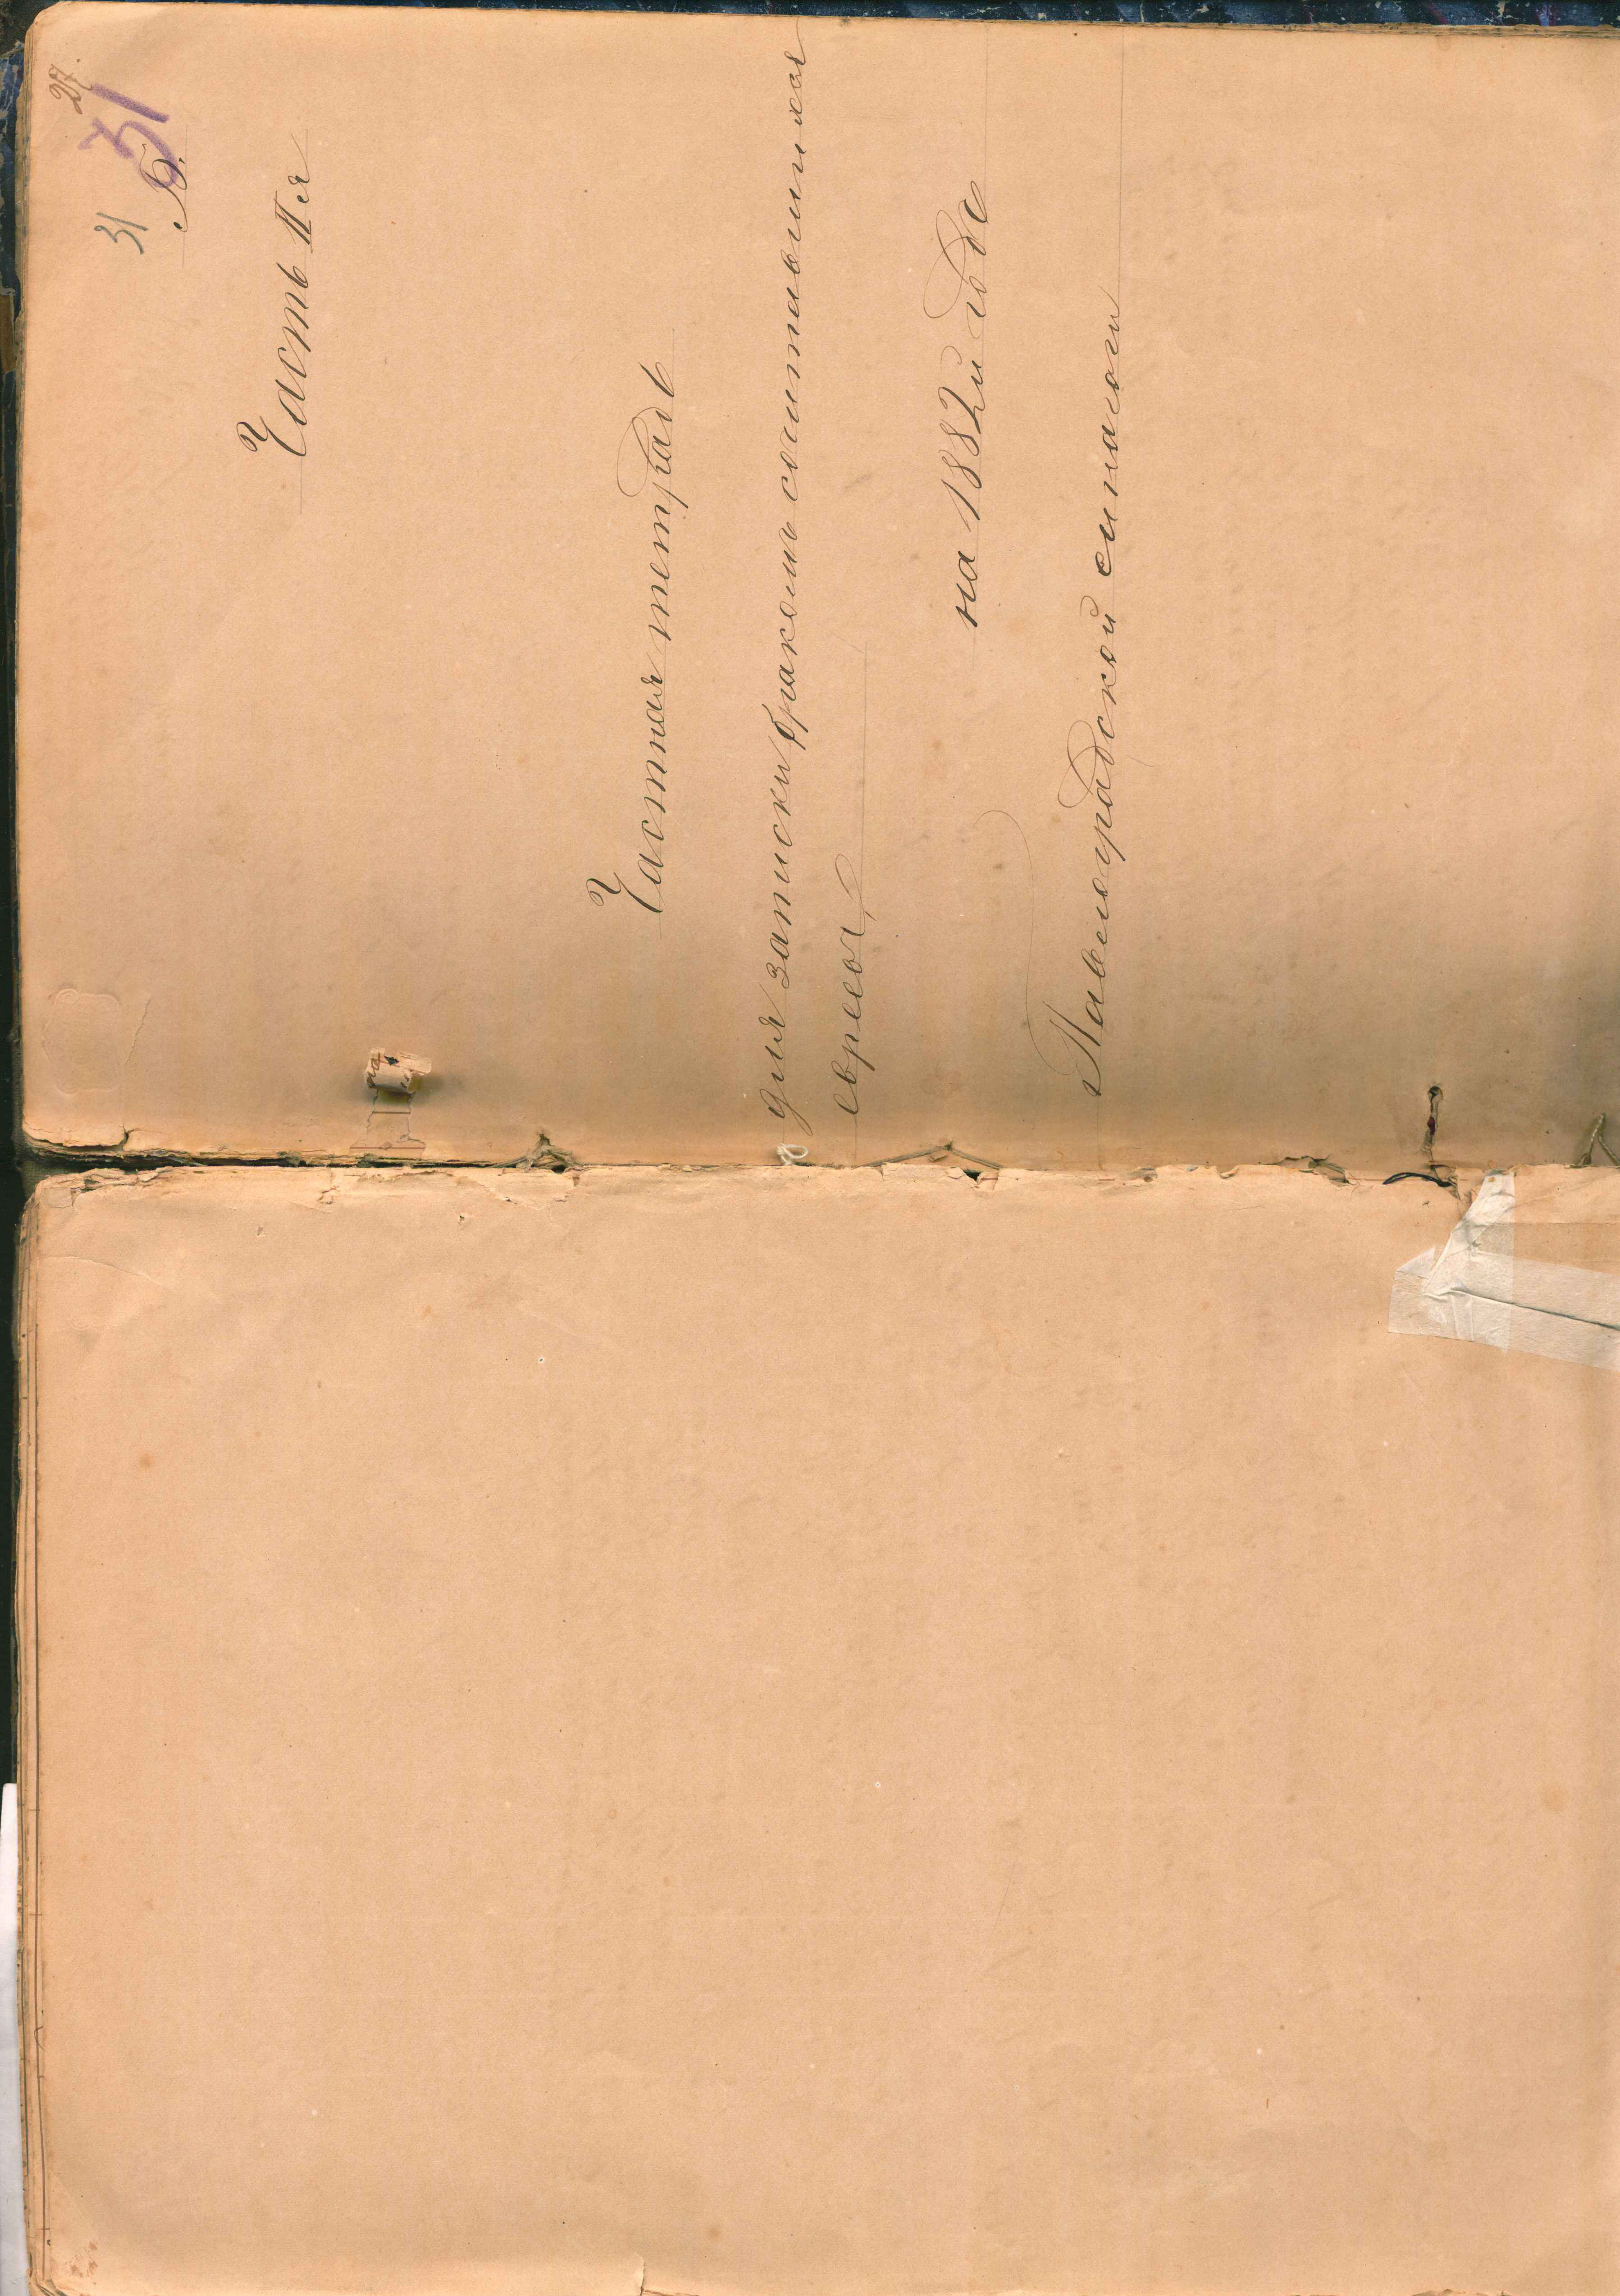 27.
31
31
Б.
Часть II я
Частная тетрадь
для записки браком сочитавшихся
евреевъ
на 1882й годъ
Павлоградской синагоги